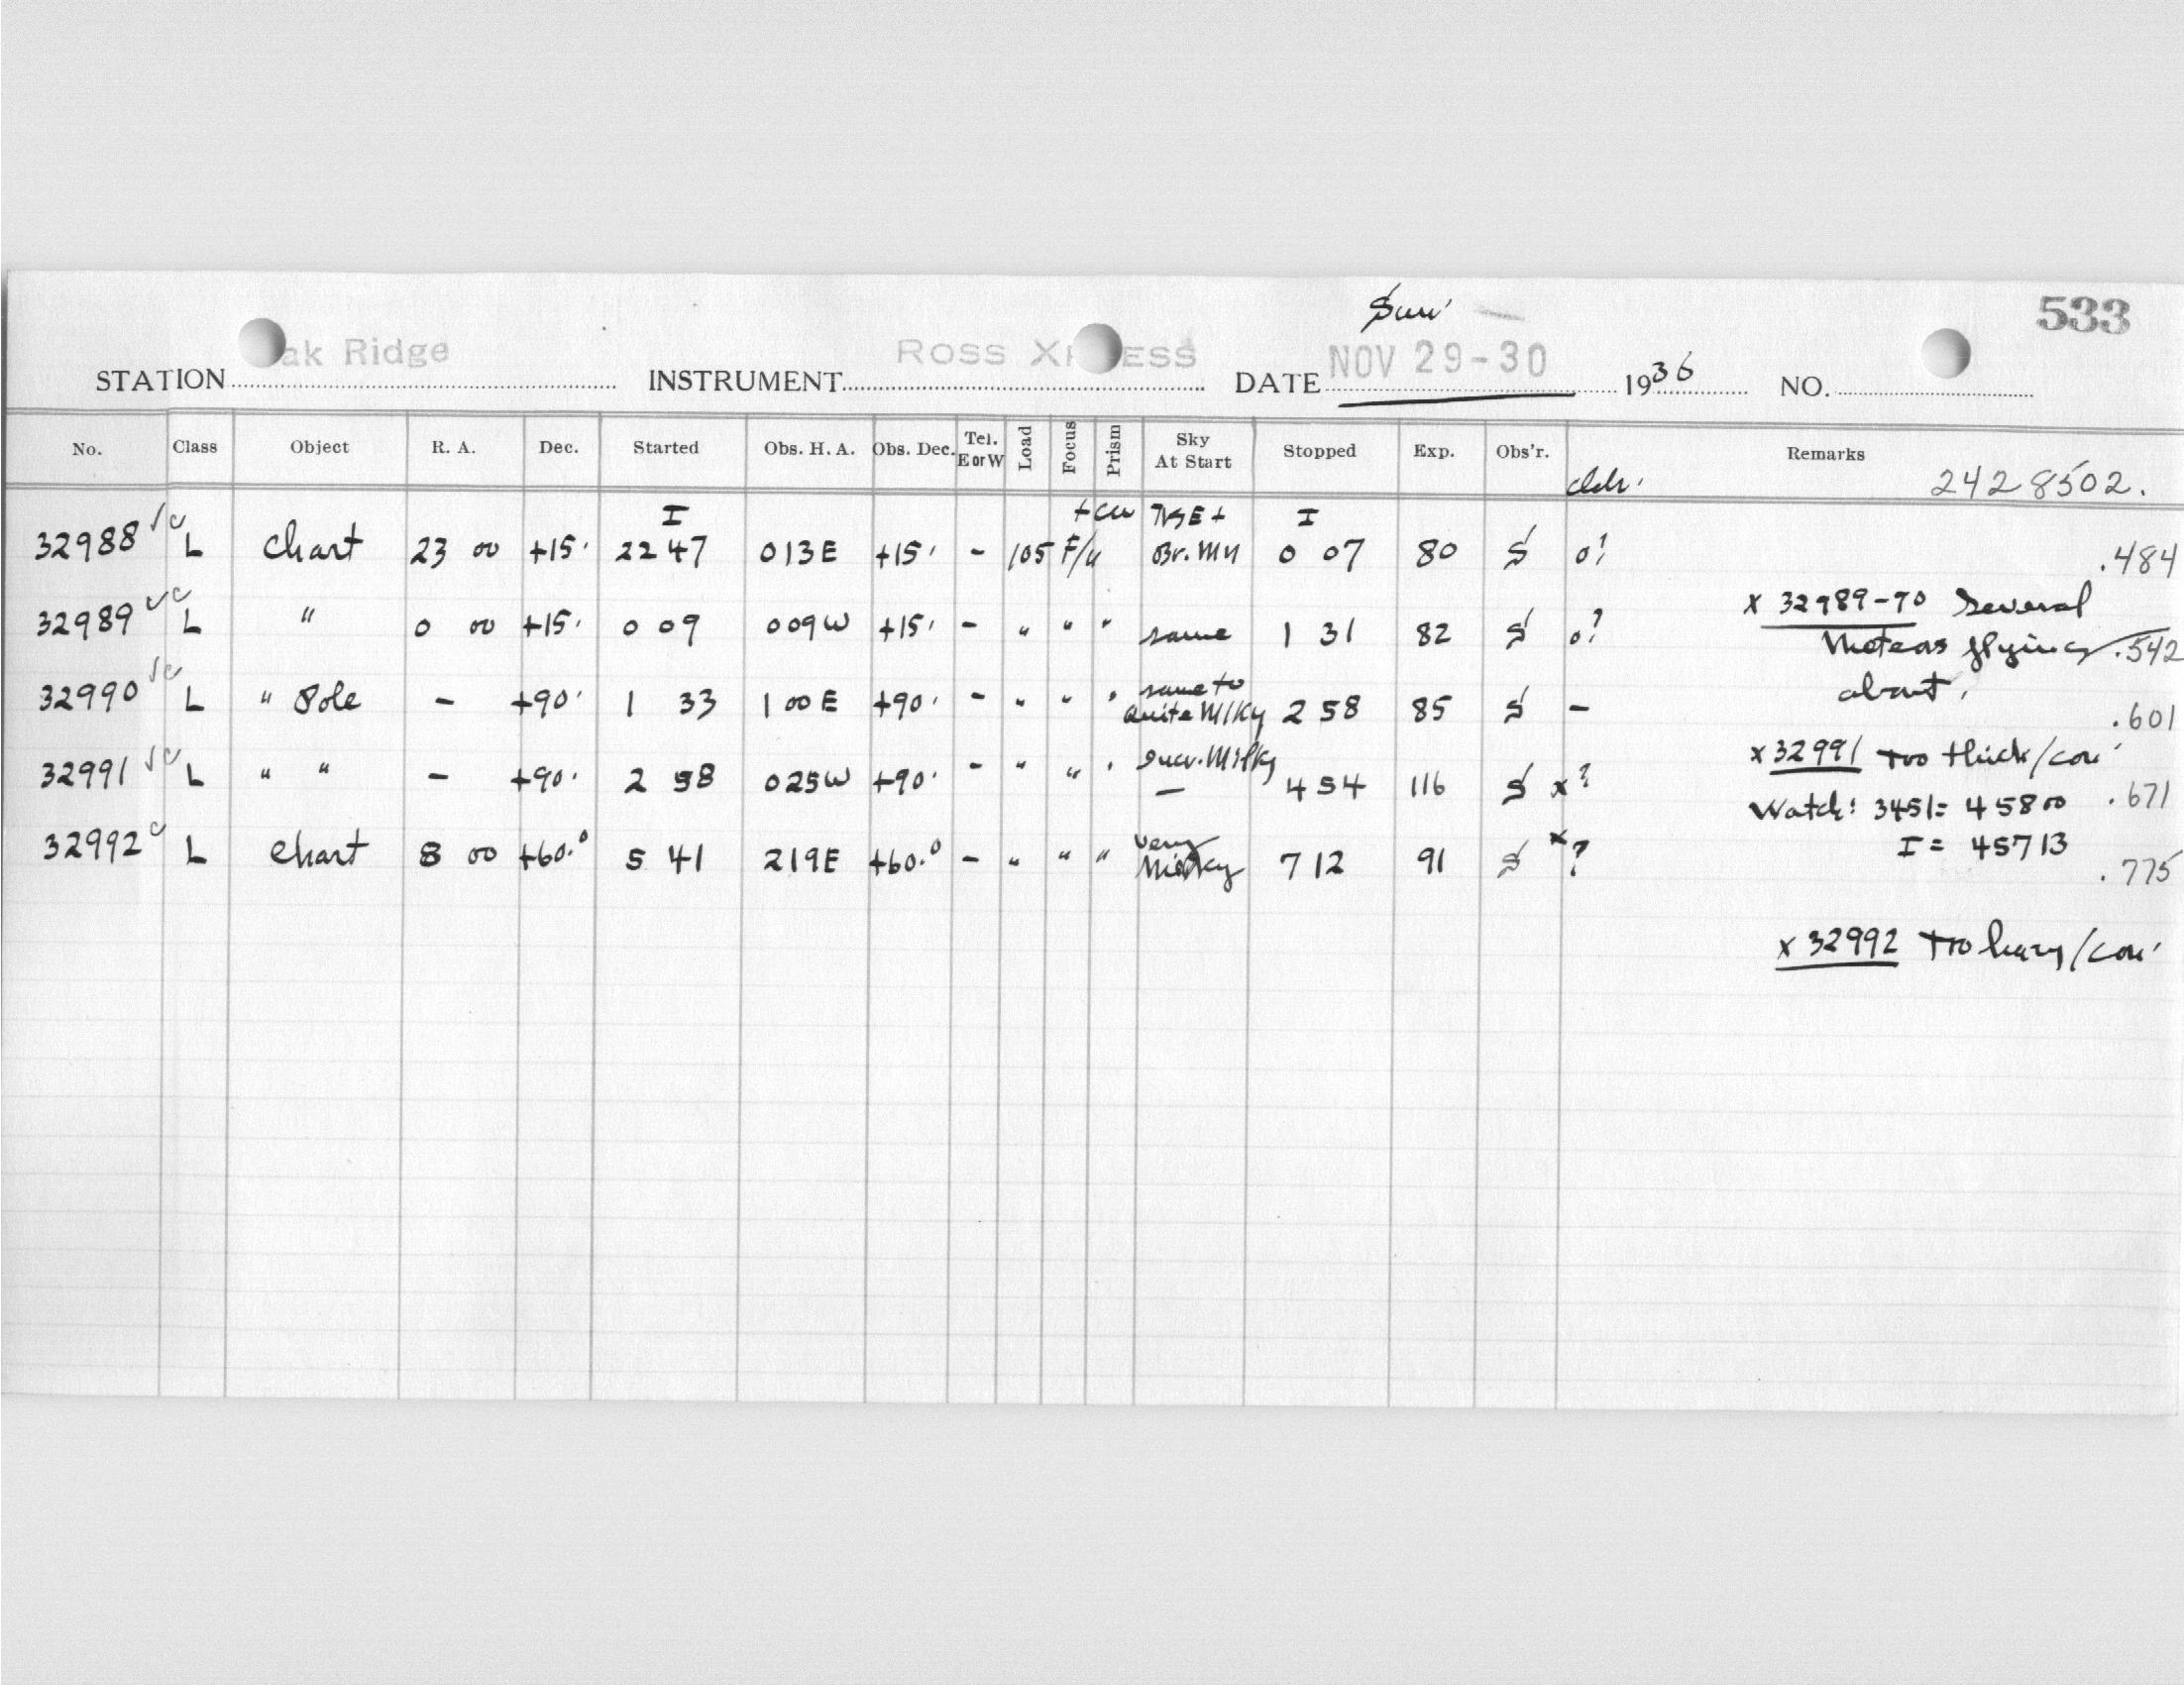 Sun'
533
STATION ak Ridge INSTRUMENT ROSS X ESS DATE NOV 29-30 1936 NO.
No. Class Object R. A. Dec. Started Obs. H. A. Obs. Dec. Tel. E or W Load Focus Prism Sky At Start Stopped Exp. Obs'r. Remarks
2428502.
I + I
32988 L Chart 23 00 +15° 22 47 013E +15° - 105 F/ 0 07 80 S o? .484
32989 L " 0 00 +15° 0 09 009W +15° - " " " same 1 31 82 S o?
x 32989-90 Several
Meteors flying .542
about.
32990 L " Pole - +90° 1 33 1 00 E +90° - " " " same to quite Milky 2 58 85 S - .601
32991 L " " - +90° 2 58 025W +90° - " " " Milky - 4 54 116 S x?
x 32991 too thick/
Watch: 3451= 4 58 00 .671
I = 45713
32992 L Chart 8 00 +60.° 5 41 219E +60.° - " " " very Milky 7 12 91 S x? .775
x 32992 too hazy/